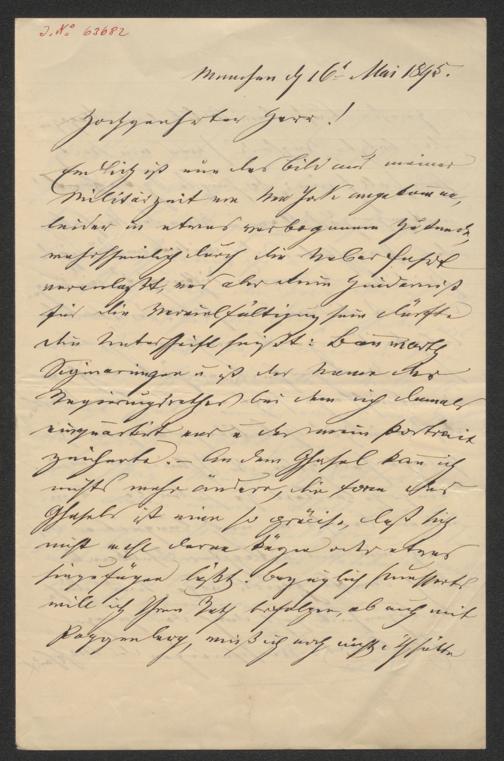 J. No 63682
München d 16t Mai 1895.
Hochgeehrter Herr!
Endlich ist nun das Bild aus meiner
Militärzeit von New York angekommen,
leider in etwas verbogenem Zustande,
wahrscheinlich durch die Ueberfahrt
veranlaßt, was aber kein Hinderniß
für die Vervielfältigung sein dürfte
die Unterschrift heißt:
Sigmaringen u ist der Name des
Regierungsrathes bei dem ich damals
einquartirt war u der mein Portrait
zeichnete. – An dem Ghasel kann ich
nichts mehr ändern, die Form des
Ghasels ist eine so präcise, daß sich
nicht wohl daran kürzen oder etwas
hinzufügen läßt. bezüglich
will ich Ihren Rath befolgen, ob auch mit
Poggenberg, muß ich noch ich hätte